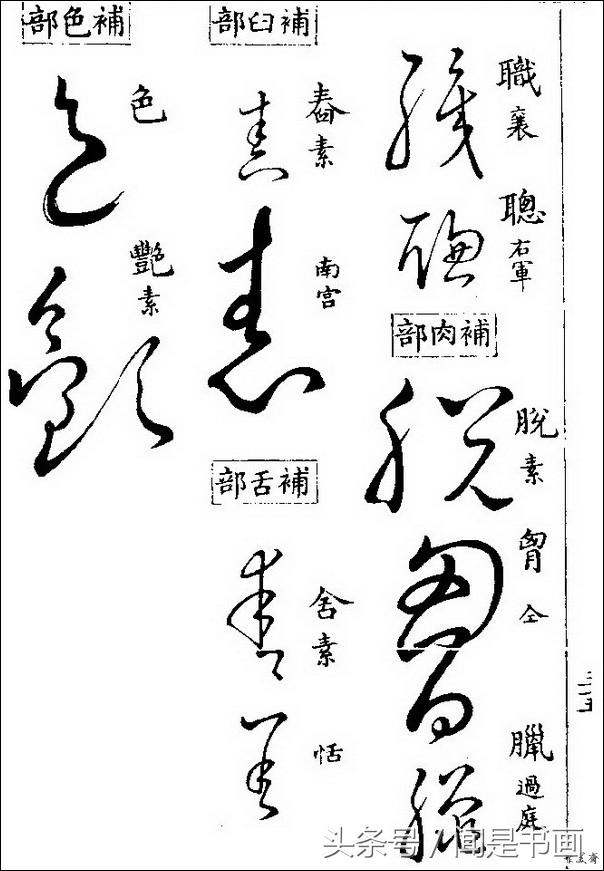 職 襄
聰 右軍
補肉部
脫 素
胷 仝
臘 過庭
補臼部
舂 素
南宫
補舌部
舍 素
恬
補色部
色
艷 素
头条号 / 闻是书画